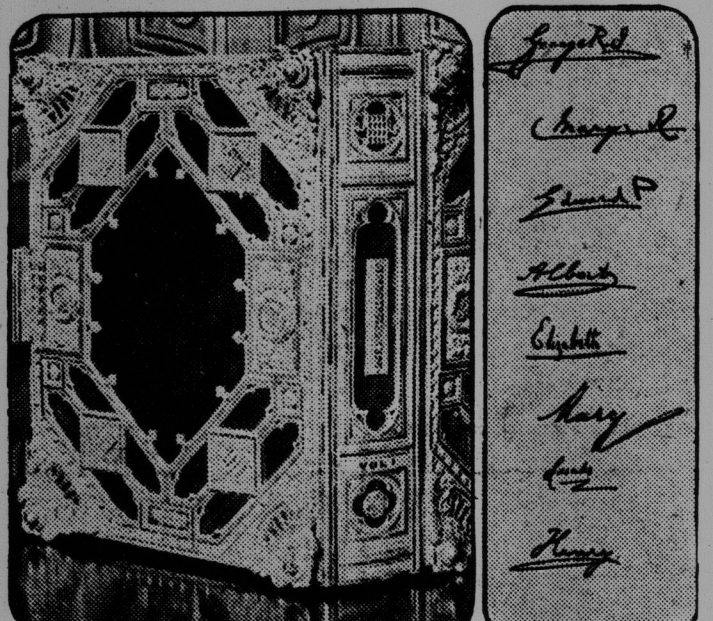 VOL I
George R.I.
Mary R
Edward P
Albert
Elizabeth
Mary
Henry